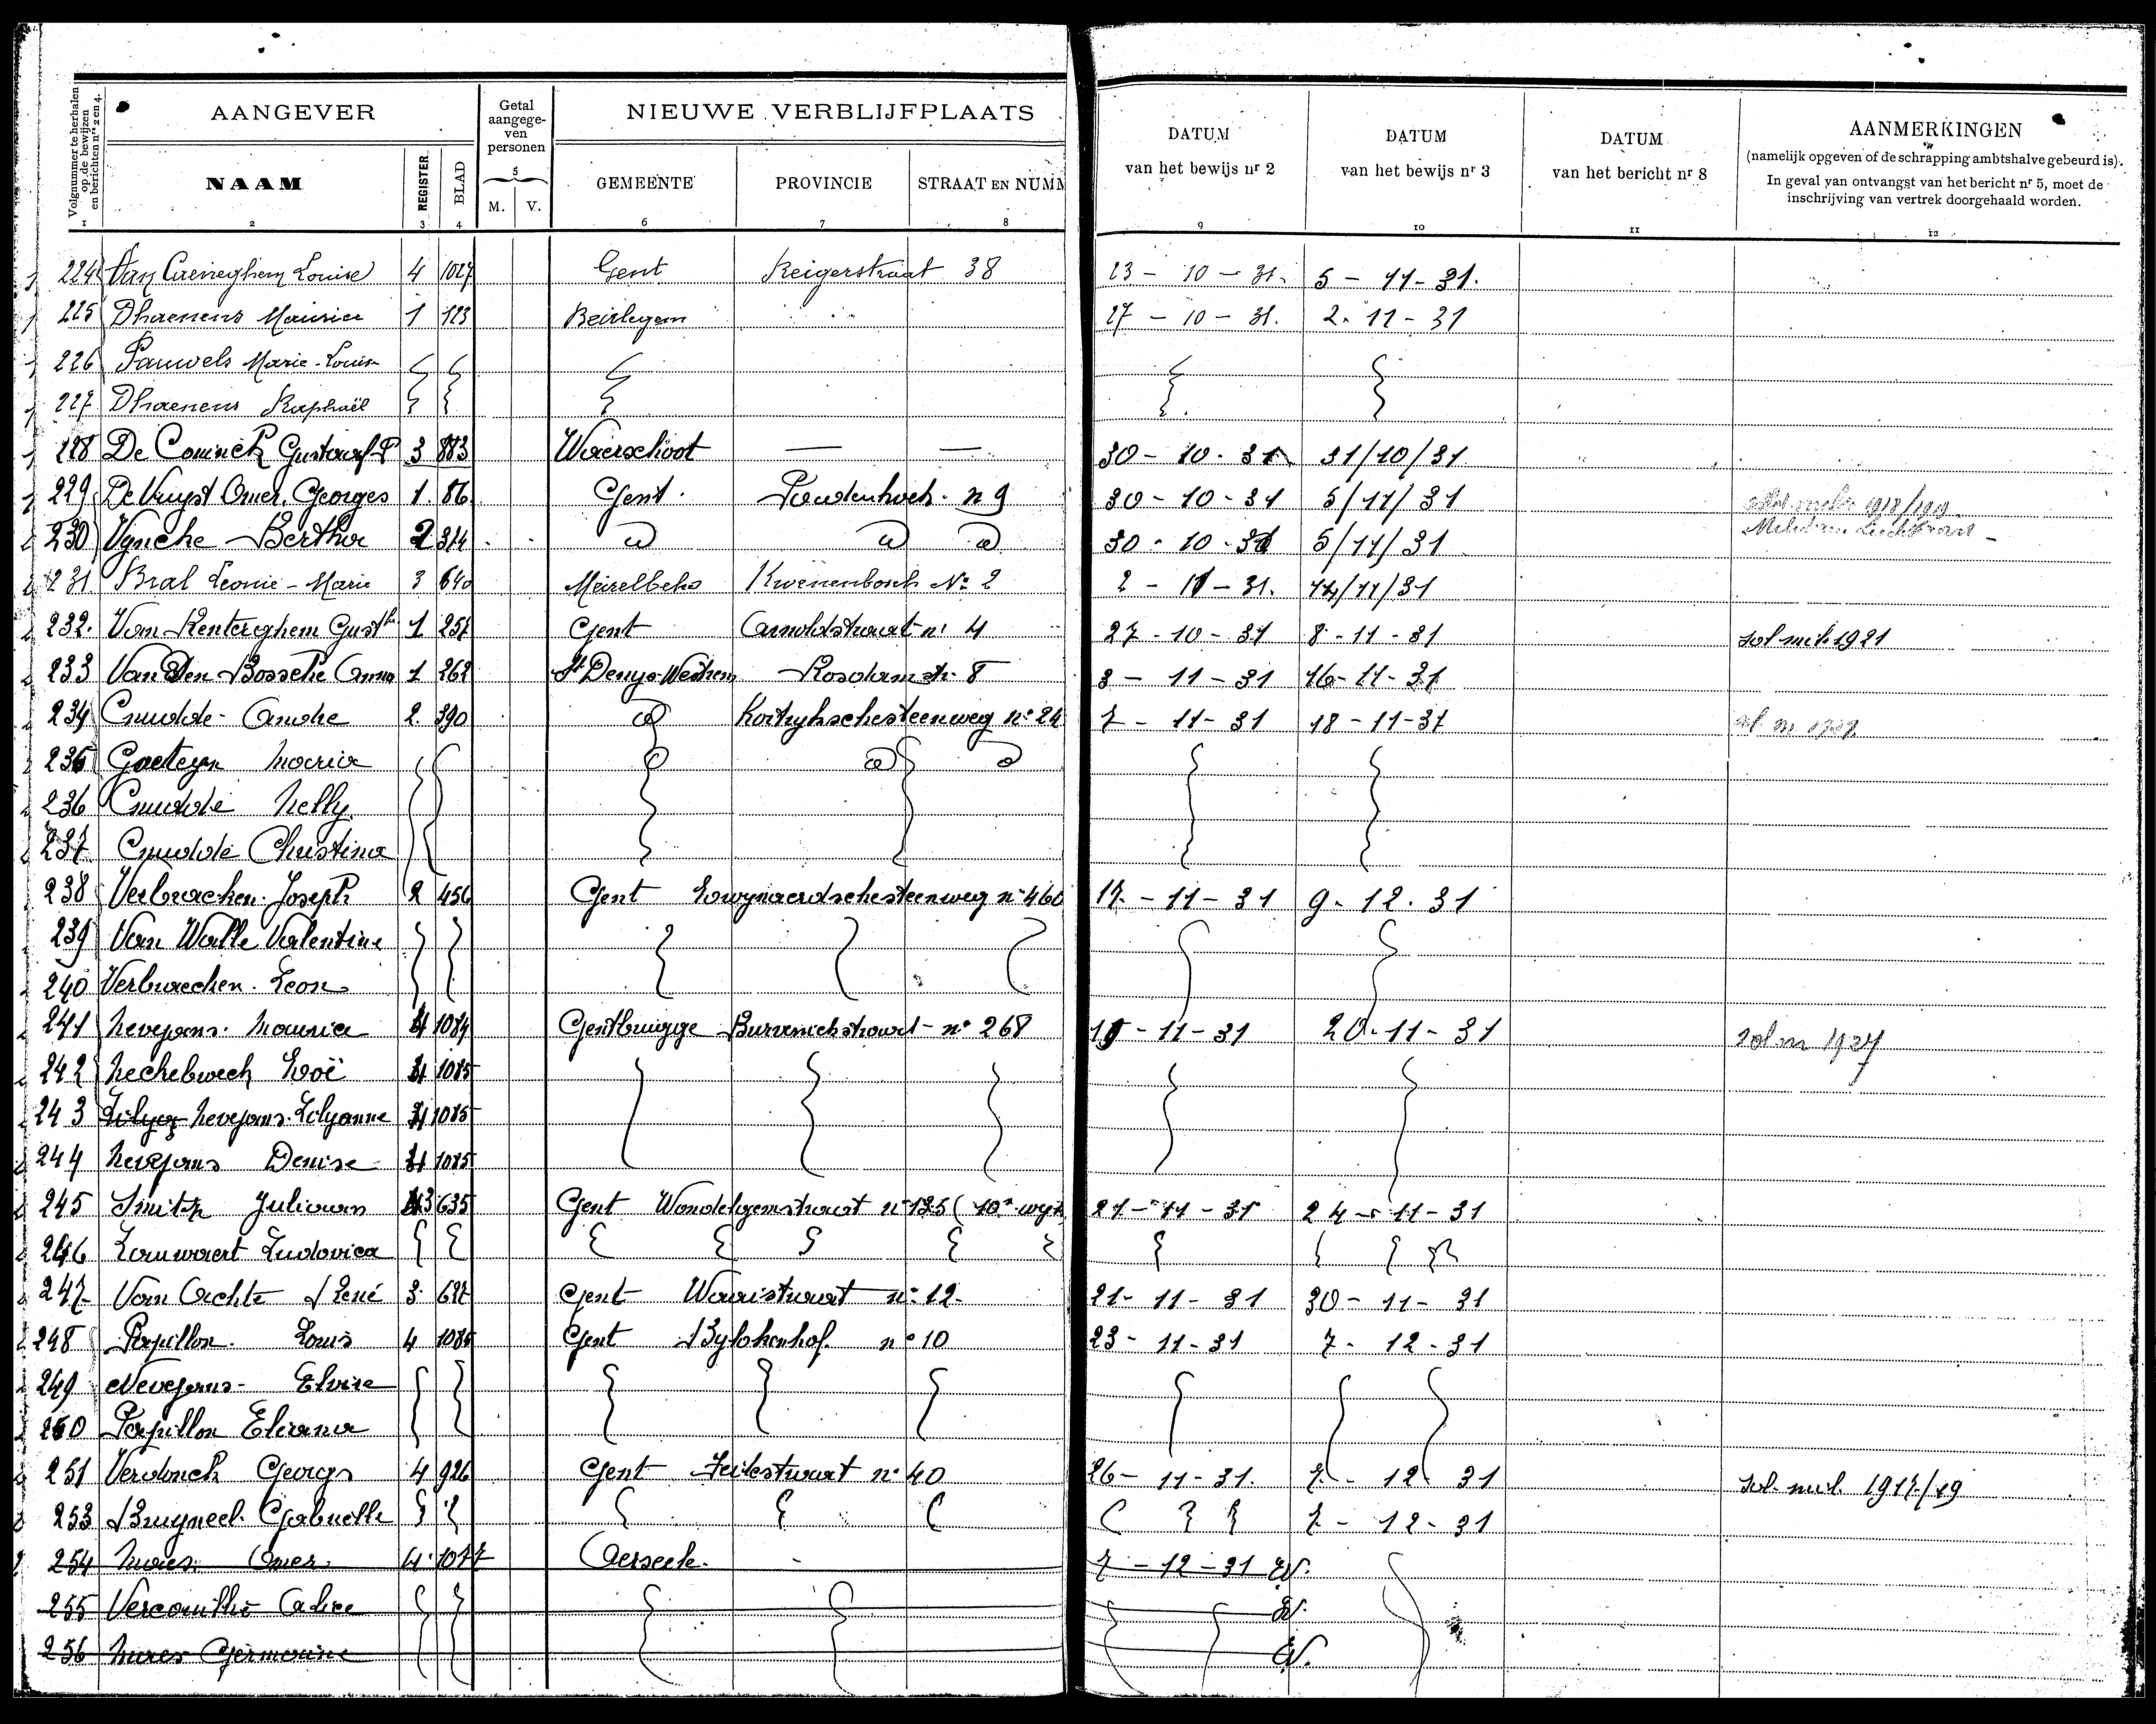 Volgnummer te herhalen op de bewijzen en berichten nrs 2 en 4.
AANGEVER
Getal aangegeven personen
NIEUWE VERBLIJFPLAATS
DATUM van het bewijs nr 2
DATUM van het bewijs nr 3
DATUM van het bericht nr 8
AANMERKINGEN
(namelijk opgeven of de schrapping ambtshalve gebeurd is).
In geval van ontvangst van het bericht nr 5, moet de inschrijving van vertrek doorgehaald worden.
NAAM REGISTER BLAD M. V. GEMEENTE PROVINCIE STRAAT EN NUMM
1 2 3 4 5 6 7 8 9 10 11 12
224 Van Louise 4 1027 Gent Reigerstraat 38 23 - 10 - 31. 5 - 11 - 31.
225 Dhaenens Maurice 1 123 Beirlegem 27 - 10 - 31. 2 - 11 - 31
226 Pauwels Marie-Louise
227 Dhaenens Raphaël
228 De Coninck Gustaaf P 3 883 Waerschoot — — 30 - 10 - 31 31/10/31
229 De Vuyst Omer. Georges 1. 86 Gent. n 9 30 - 10 - 31 5/11/31 1918/1919
230 Vyncke Bertha 2 314 30 - 10 - 31 5/11/31
231. Bral Leonie - Marie 3 640 Meirelbeke Kwenenbosch No 2 2 - 11 - 31. 14/11/31
232. Van Renterghem Gust 1 257 Gent Arnoldstraat n. 4 27 - 10 - 31 8 - 11 - 31 sol mil. 1921
233 Van Den Bossche Anna 1 262 St Denys-Westrem Rosdam str. 8 8 - 11 - 31 16 - 11 - 31
234 Cnudde - Andre 2. 390 Kortrykschesteenweg no 24 7 - 11 - 31 18 - 11 - 31
235 Maria
236 Cnudde Nelly
237 Cnudde Christina
238 Verbraeken. Joseph 2 456 Gent Zwynaerdschesteenweg n 460 17. - 11 - 31 9 - 12 - 31
239 Van Walle Valentine
240 Verbraecken. Leon
241 Nevejans. Maurice 4 1084 Gentbrugge no 268 19 - 11 - 31 20 - 11 - 31 sol m 1927
242 Zoë 4 1085
243 Nevejans. Lilyanne 4 1085
244 Nevejans Denise 4 1085
245 Smitz Juliaan 3 635 Gent Wondelgemstraat no 125 (10e wyk 21 - 11 - 31 24 - 11 - 31
246 Ludovica
247 Van Achte René 3. 627 Gent no 12. 21 - 11 - 31 30 - 11 - 31
248 Papillon. Louis 4 1085 Gent Bylokenhof. no 10 23 - 11 - 31 7 - 12 - 31
249 Nevejans - Elvire
250 Papillon Eliana
251 Verdonck Georgs 4 926 Gent no 40 26 - 11 - 31. 7 - 12 31 sol. mil. 1917/19
253 Bruyneel. Gabrielle 7 - 12 - 31
254 Omer. 4. 1077 Aerseele. 7 - 12 - 31
255 Vercouillie Alice
256 Germaine